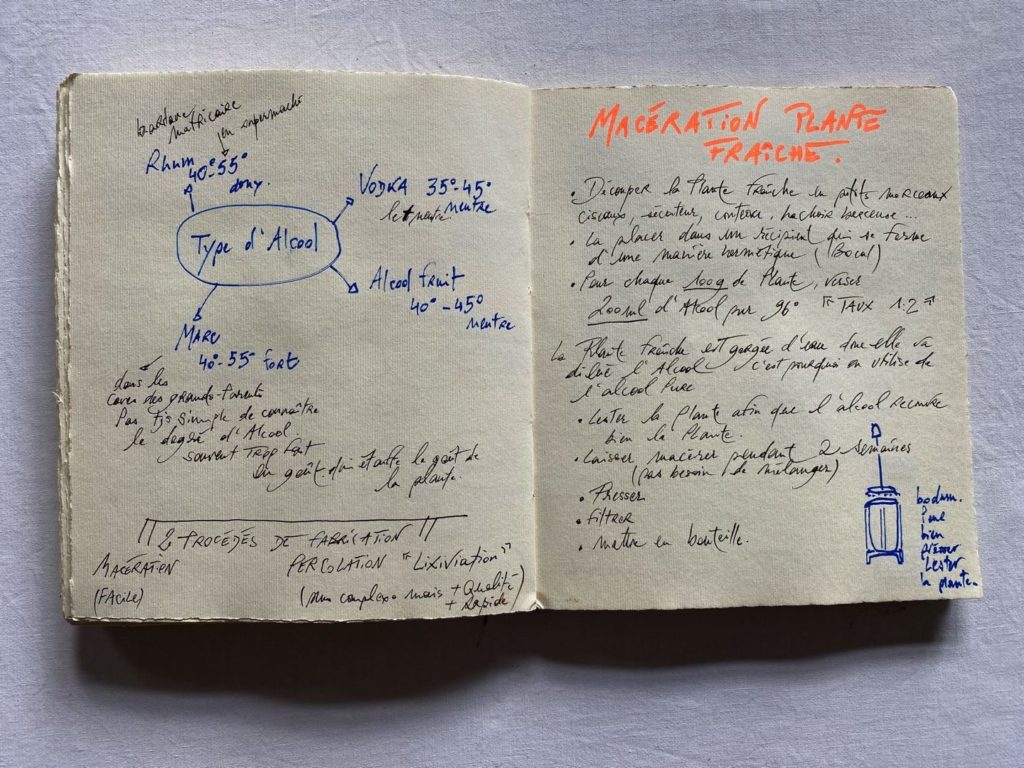 bardane
matricaire
en supermarché
Rhum
40°-55°
doux.
VODKA 35°-45°
neutre
Type d'Alcool
Alcool fruit
40° - 45°
neutre
MARC
40°-55° fort
dans les
caves des grands-parents
Pas tjs simple de connaître
le degré d'Alcool.
souvent TRop fort
Un goût qui étouffe le goût de
la plante.
"2 PROCÉDÉS DE FABRICATION"
MACÉRATION
(FACILE)
PERCOLATION "Lixiviation"
(plus complexe mais + Qualité
+ Rapide)
MACÉRATION PLANTE
FRAÎCHE.
• Découper la Plante fraîche en petits morceaux
ciseaux, sécateur, couteau, hachoir berceuse...
• La placer dans un récipient qui se ferme
d'une manière hermétique (Bocal)
• Pour chaque 100g de Plante, verser
200ml d'Alcool pur 96° "TAUX 1:2"
La Plante fraîche est gorgée d'eau donc elle va
diluer l'Alcool c'est pourquoi on utilise de
l'alcool Pure
• Lester la plante afin que l'alcool recouvre
bien la Plante.
• Laisser macérer pendant 2 semaines
(pas besoin de mélanger)
• Presser
• Filtrer
• mettre en bouteille.
bodum.
bien
presser
Lester
la plante.